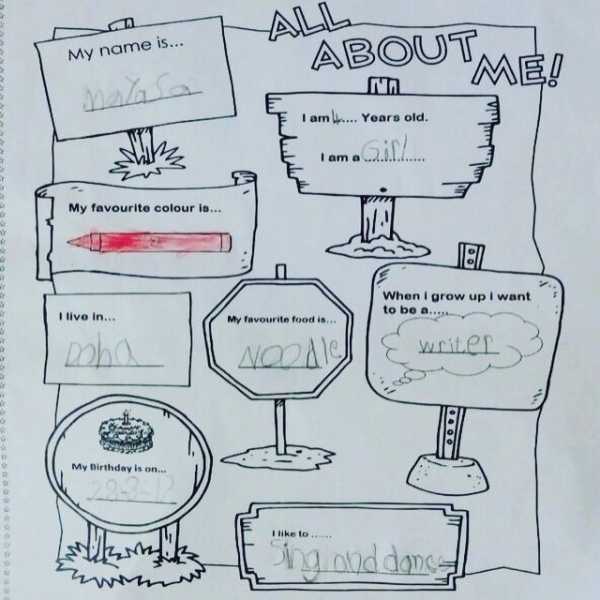 ALL
ABOUT
ME!
My name is...
I am 4.... Years old.
I am a Girl
My favourite colour is...
I live in...
Doha
My favourite food is...
Noodle
When i grow up i want
to be a.....
writer
My Birthday is on...
28-8-12
I like to ......
Sing and dance